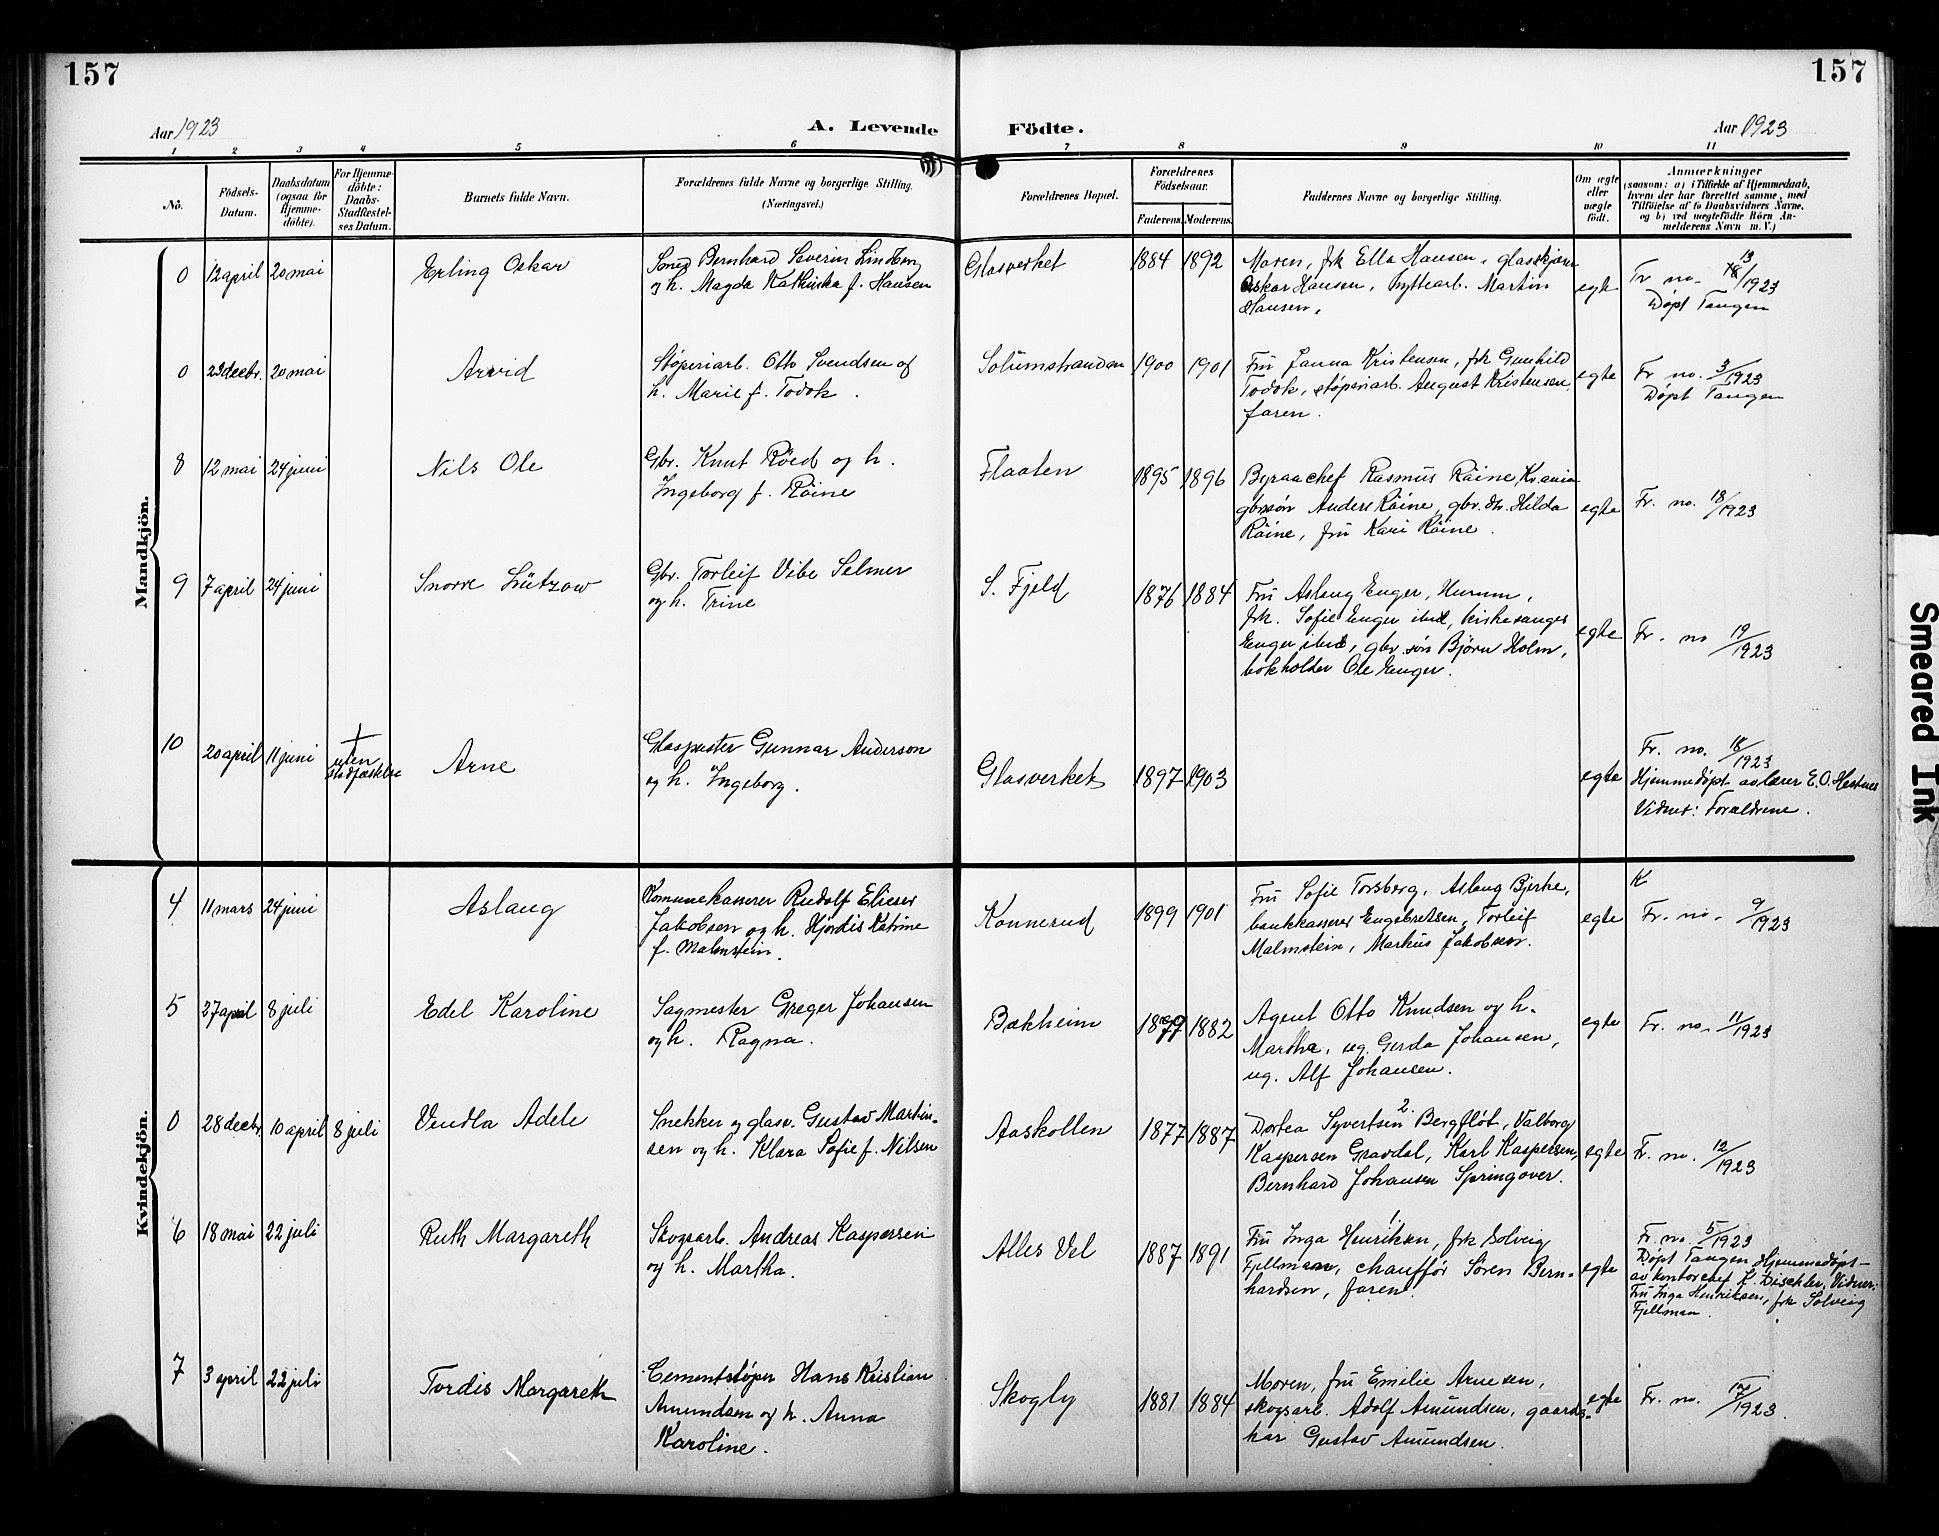 157
157
Aar 1923
A. Levende
Födte.
Aar 1923
1 2 3 4 5 6 7 8 9 10 11
No.
Födsels-
Datum.
Daabsdatum
(ogsaa for
Hjemme-
döbte).
For Hjemme-
döbte:
Daabs-
Stadfæstel-
ses Datum.
Barnets fulde Navn.
Forældrenes fulde Navne og borgerlige Stilling.
(Næringsvei.)
Forældrenes Bopæl.
Forældrenes
Födselsaar.
Faderens.
Moderens.
Faddernes Navne og borgerlige Stilling.
Om ægte
eller
uægte
födt.
Anmærkninger
(saasom: a) i Tilfælde af Hjemmedaab,
hvem der har forrettet samme, med
Tilföielse af to Daabsvidners Navne,
og b) ved uægtefödte Börn An-
melderens Navn m. V.)
Mandkjön.
0 12 april 20 mai
Erling Oskar
Smed Bernhard Severin Lindberg
og h. Magda Kathinka f. Hansen
Glasverket
1884 1892
Moren, frk Ella Hansen, glasskjærer
Oskar Hansen, hyttearb. Martin
Hansen.
egte
Fr no. 13/1923
Døpt Tangen
0 23 decbr. 20 mai
Arvid
Støperiarb. Otto Svendsen og
h. Marie f. Todok.
Solumstranden
1900 1901
Fru Janna Kristensen, frk Gunhild
Todok, støperiarb. August Kristensen,
faren.
egte
Fr no. 3/1923
Døpt Tangen
8 12 mai 24 juni
Nils Ole
Gbr. Knut Röed og h.
Ingeborg f. Röine
Flaaten
1895 1896
Byraachef Rasmus Röine Kr.ania
gbrsøn Anders Röine, gbr. dtr. Hilda
Röine, fru Kari Röine.
egte
Fr. no. 18/1923
9 7 april 24 juni
Snorre Lützow
Gbr. Torleif Vibe Selmer
og h. Trine
S. Fjeld
1876 1884
Fru Aslaug Enger, Hurum,
frk. Sofie Enger ibid, kirkesanger
Enger ibid, gbr. søn Bjørn Holm,
bokholder Ole Enger.
egte
Fr. no 19/1923
10 20 april 11 juni
+
uten
stadfæstelse
Arne
Glaspuster Gunnar Anderson
og h. Ingeborg.
Glasverket
1897 1903
egte
Fr. no. 18/1923
Hjemmedøpt av lærer E. O. Hestnes
Vidner: Forældrene.
Kvindekjön.
4 11 mars 24 juni
Aslaug
Komunekasserer Rudolf Elieser
Jakobsen og h. Hjørdis Katrine
f. Malmstein.
Konnerud
1899 1901
Fru Sofie Torsberg, Aslaug Bjerke,
bankkasserer Engebretsen, Torleif
Malmstein, Markus Jakobsen.
egte
K
Fr. no. 9/1923
5 27 april 8 juli
Edel Karoline
Sagmester Greger Johansen
og h. Ragna.
Bækheim
1879 1882
Agent Otto Knudsen og h.
Martha, ug. Gerda Johansen,
ug. Alf Johansen.
egte
Fr. no. 11/1923
0 28 decbr. 10 april 8 juli
Vendla Adele
Snekker og glasv. Gustav Martin-
sen og h. Klara Sofie f. Nilsen
Aaskollen
1877 1887
Dortea Syvertsen Bergfløt, Valborg
Kaspersen Gravdal, Karl Kaspersen,
Bernhard Johansen Springover.
egte
Fr. no. 12/1923
6 18 mai 22 juli
Ruth Margareth
Skogsarb. Andreas Kaspersen
og h. Martha.
Alles Vel
1887 1891
Fru Inga Henriksen, frk Solveig
Fjellman, chaufför Sören Bern-
hardsen, faren.
egte
Fr. no. 5/1923
Døpt Tangen Hjemmedøpt
av kontorchef K. Dischler, Vidner:
Fru Inga Henriksen, frk Solveig
Fjellman.
7 3 april 22 juli
Tordis Margareth
Cementstøper Hans Kristian
Amundsen og h. Anna
Karoline.
Skogly
1881 1884
Moren, fru Emilie Arnesen,
skogsarb. Adolf Amundsen, gaards-
kar Gustav Amundsen.
egte
Fr. no. 17/1923.
Smeared Ink